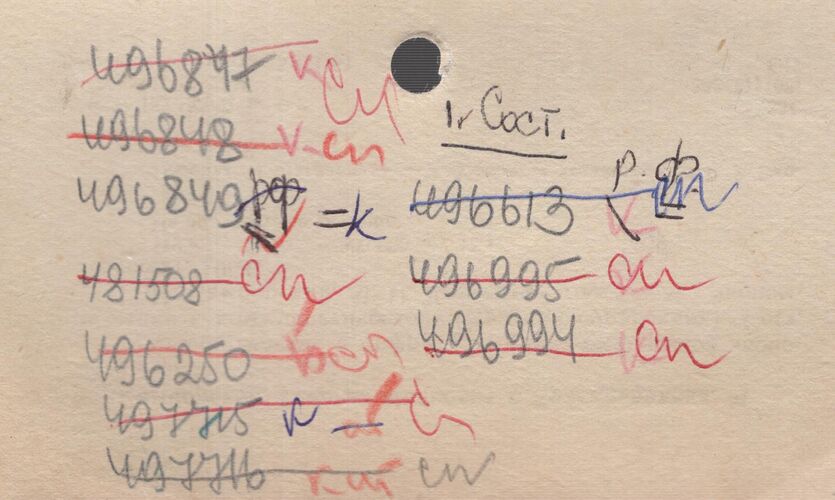 496847 v-сп
496848 v-сп
496849 рф = к
481508 сп
496250
497715 к
497716 сп
1. Сост.
496613 р.ф.
496995 сп
496994 сп